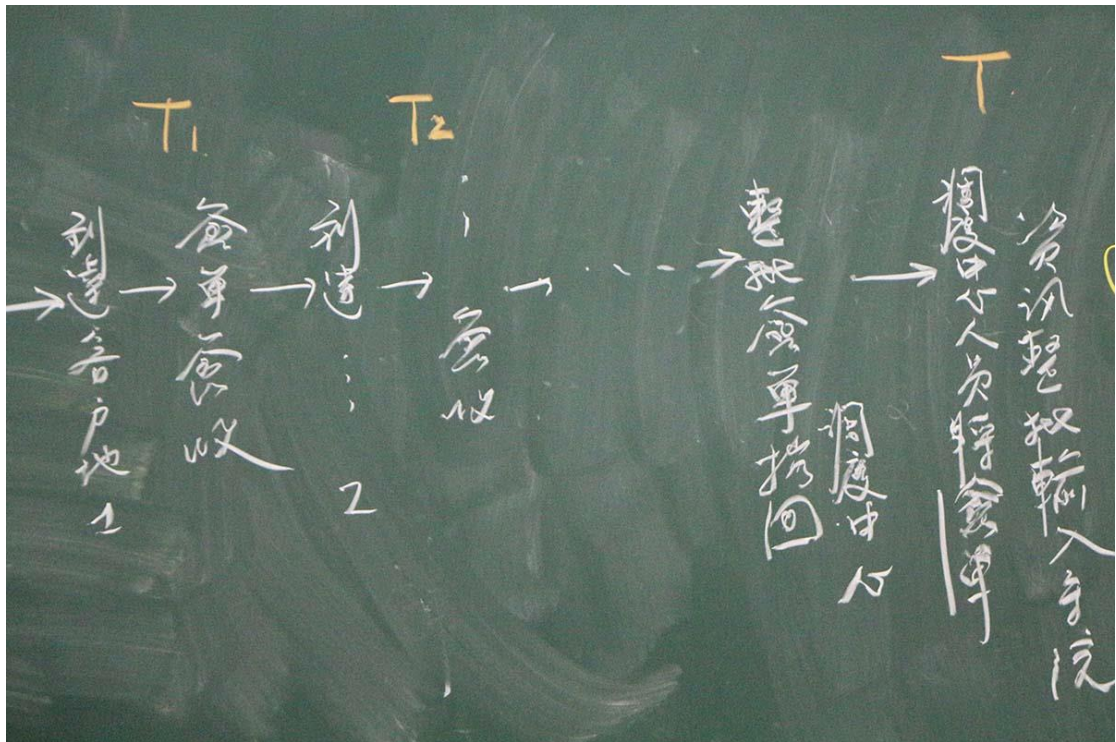 T1
T2
T
→ 到達客戶地1
→ 簽單簽收
→ 到達⋮2
→ ⋮簽收
→ ⋯
→ 整批簽單攜回
調度中心
→ 調度中心人員將簽單
資訊整批輸入系統